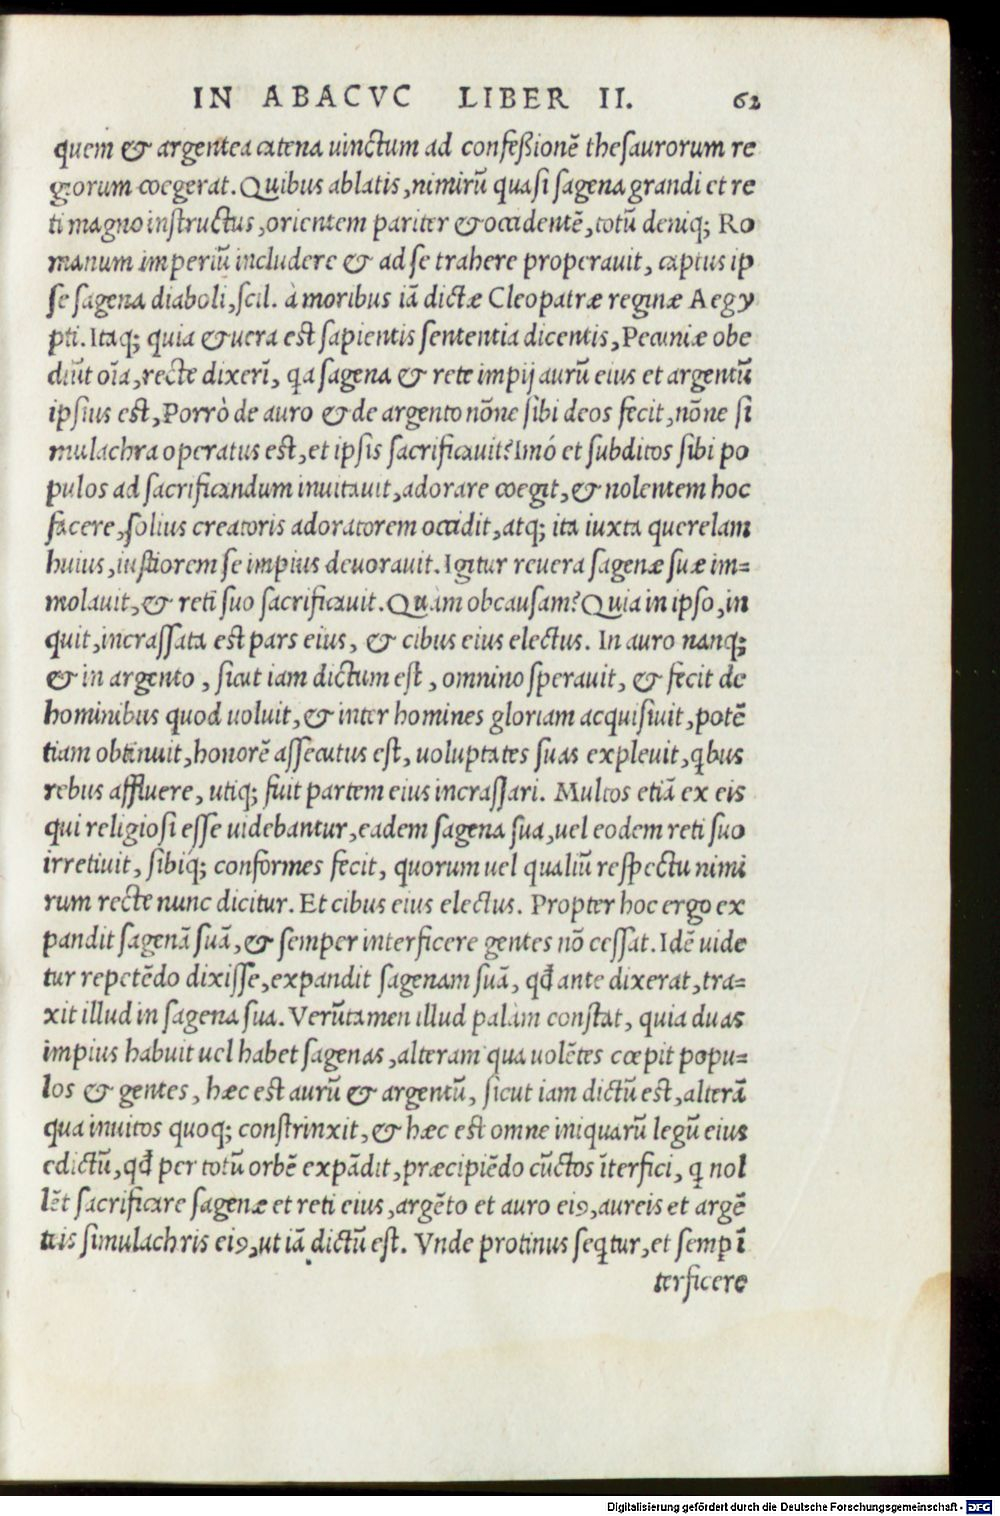 IN ABACVC LIBER II. 62
quem & argentea catena uinctum ad confeßionē thesaurorum re
giorum coegerat. Quibus ablatis, nimirū quasi sagena grandi et re
ti magno instructus, orientem pariter & occidentē, totū deniq; Ro
manum imperiū includere & ad se trahere properauit, captus ip
se sagena diaboli, scil. à moribus iā dictæ Cleopatræ reginæ Aegy
pti. Itaq; quia & uera est sapientis sententia dicentis, Pecuniæ obe
diūt oīa, recte dixerī, qa sagena & rete impij aurū eius et argentū
ipsius est, Porrò de auro & de argento nōne sibi deos fecit, nōne si
mulachra operatus est, et ipsis sacrificauit? Imó et subditos sibi po
pulos ad sacrificandum inuitauit, adorare coegit, & nolentem hoc
facere, solius creatoris adoratorem occidit, atq; ita iuxta querelam
huius, iustiorem se impius deuorauit. Igitur reuera sagenæ suæ im=
molauit, & reti suo sacrificauit. Quàm obcausam? Quia in ipso, in
quit, incrassata est pars eius, & cibus eius electus. In auro nanq;
& in argento, sicut iam dictum est, omnino sperauit, & fecit de
hominibus quod uoluit, & inter homines gloriam acquisiuit, potē
tiam obtinuit, honorē assecutus est, uoluptates suas expleuit, qbus
rebus affluere, utiq; fuit partem eius incrassari. Multos etiā ex eis
qui religiosi esse uidebantur, eadem sagena sua, uel eodem reti suo
irretiuit, sibiq; conformes fecit, quorum uel qualiū respectu nimi
rum recte nunc dicitur. Et cibus eius electus. Propter hoc ergo ex
pandit sagenā suā, & semper interficere gentes nō cessat. Idē uide
tur repetēdo dixisse, expandit sagenam suā, qđ ante dixerat, tra=
xit illud in sagena sua. Verūtamen illud palàm constat, quia duas
impius habuit uel habet sagenas, alteram qua uolētes cœpit popu=
los & gentes, hæc est aurū & argentū, sicut iam dictū est, alterā
qua inuitos quoq; constrinxit, & hæc est omne iniquarū legū eius
edictū, qđ per totū orbē expādit, præcipiēdo cūctos īterfici, q nol
lēt sacrificare sagenæ et reti eius, argēto et auro eiꝰ, aureis et argē
teis simulachris eiꝰ, ut iā dictū est. Vnde protinus seqtur, et semp ī
terficere
Digitalisierung gefördert durch die Deutsche Forschungsgemeinschaft - DFG